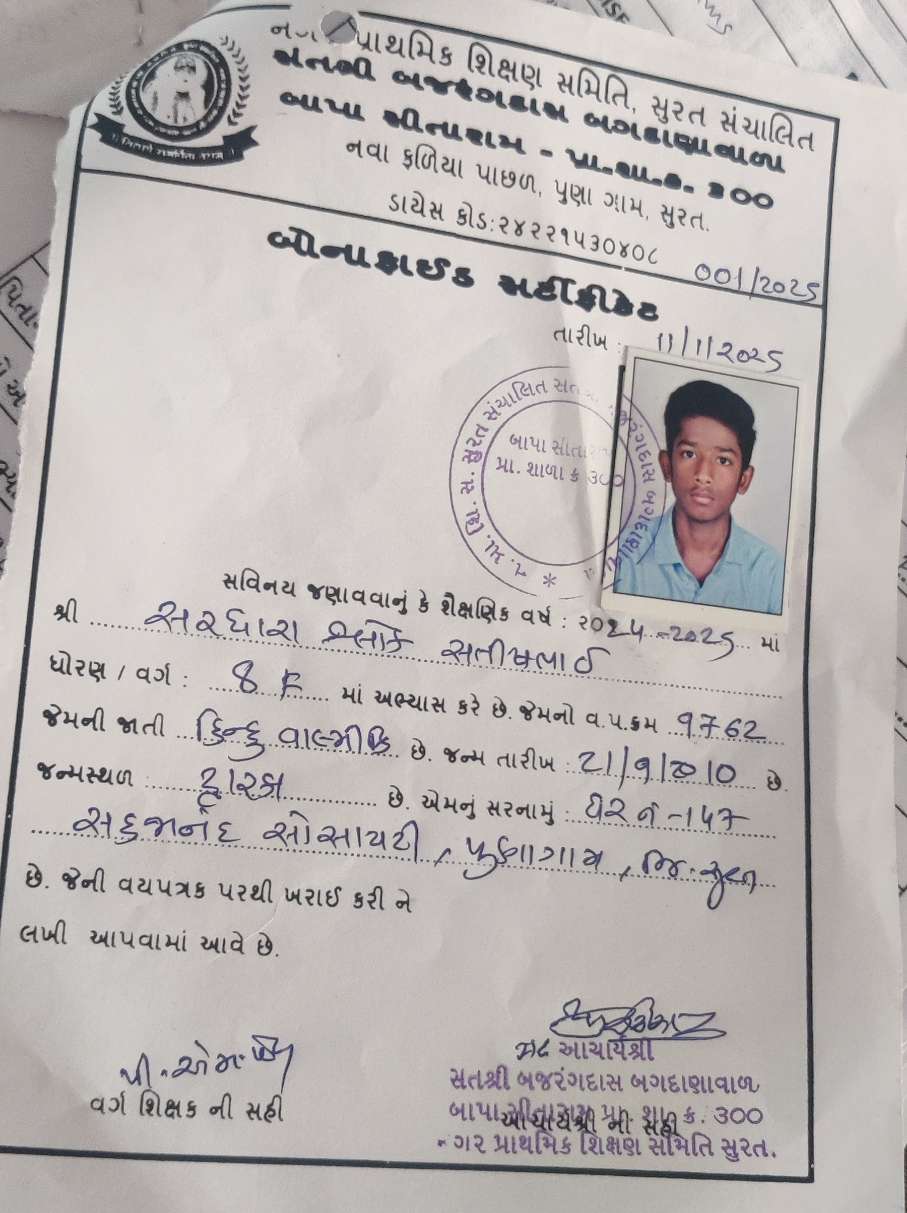 પ્રાથમિક શિક્ષણ સમિતિ, સુરત સંચાલિત
સંતશ્રી બજરંગદાસ બગદાણાવાળા
બાપા સીતારામ - પ્રા.શા.ક્ર. ૩૦૦
નવા ફળિયા પાછળ, પુણા ગામ, સુરત.
ડાયેસ કોડ:૨૪૨૨૧૫૩૦૪૦૮
001/2025
બોનાફાઈડ સર્ટીફીકેટ
તારીખ : 11/1/2025
બાપા સીતારામ
પ્રા. શાળા ક્ર ૩૦૦
સવિનય જણાવવાનું કે શૈક્ષણિક વર્ષ : ૨૦૨૪-2025 માં
શ્રી સરધારા શ્લોક સતીષભાઈ
ધોરણ / વર્ગ : 8 F માં અભ્યાસ કરે છે. જેમનો વ.પ.ક્રમ 9762
જેમની જાતી હિન્દુ વાલ્મીકિ છે. જન્મ તારીખ : 21/9/2010 છે.
જન્મસ્થળ : દ્વારકા છે. એમનું સરનામું : ઘર નં-147
સહજાનંદ સોસાયટી, પુણાગામ, જિ.સુરત
છે. જેની વયપત્રક પરથી ખરાઈ કરી ને
લખી આપવામાં આવે છે.
પી.એમ.
વર્ગ શિક્ષક ની સહી
આચાર્યશ્રી
સતશ્રી બજરંગદાસ બગદાણાવાળ
બાપા સીતારામ પ્રા. શાળ ક્ર. 300
આચાર્યશ્રી ની સહી
નગર પ્રાથમિક શિક્ષણ સમિતિ સુરત.